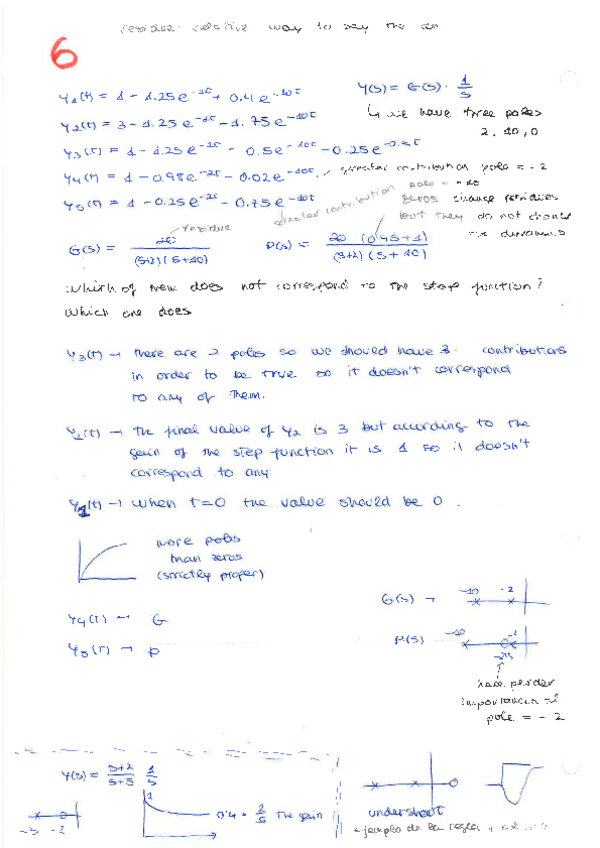 residue: relative way to say the
6
y1(t) = 1 - 1.25e^-2t + 0.4e^-10t
Y(s) = G(s) · 1/s
↳ we have three poles
2, 10, 0
y2(t) = 3 - 1.25e^-2t - 1.75e^-10t
y3(t) = 1 - 1.25e^-2t - 0.5e^-10t - 0.25e
y4(t) = 1 - 0.98e^-2t - 0.02e^-10t, greater contribution pole = -2
y5(t) = 1 - 0.25e^-2t - 0.75e^-10t
greater contribution pole = -10
zeros change residues
but they do not change
the dynamics
residue
G(s) = 20/(s+2)(s+10)
P(s) = 20(0.45s+1)/(s+2)(s+10)
which of them does not correspond to the step function?
which one does
y3(t) → there are 2 poles so we should have 3 contributions
in order to be true so it doesn't correspond
to any of them.
y2(t) → the final value of y2 is 3 but according to the
gain of the step function it is 1 so it doesn't
correspond to any
y1(t) → when t=0 the value should be 0.
more poles
than zeros
(strictly proper)
G(s) → -10 -2
y4(t) → G
P(s) → -10 -2
y5(t) → P
hace perder
importancia
pole = -2
Y(s) = s+2/s+5 1/s
1
0.4 = 2/5 the gain
-5 -2
undershoot
ejemplo de la regla